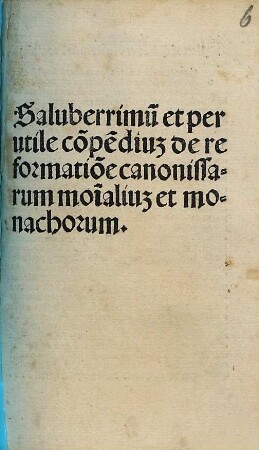 6
Saluberrimū et per
utile cōpēdiuꝫ de re
formatiōe canonissa-
rum moīaliuꝫ et mo-
nachorum.